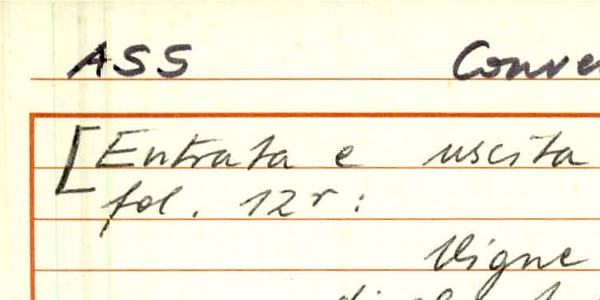 ASS
[Entrata e uscita
fol. 12r:
Vigne